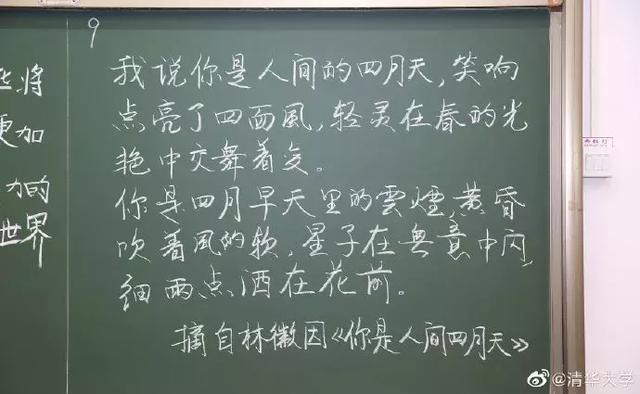 些将
更加
力的
世界
9
我说你是人间的四月天，笑响
点亮了四面風，轻灵在春的光
艳中交舞着变。
你是四月早天里的雲煙，黄昏
吹着風的软，星子在無意中闪，
细雨点洒在花前。
摘自林徽因《你是人间四月天》
@清华大学